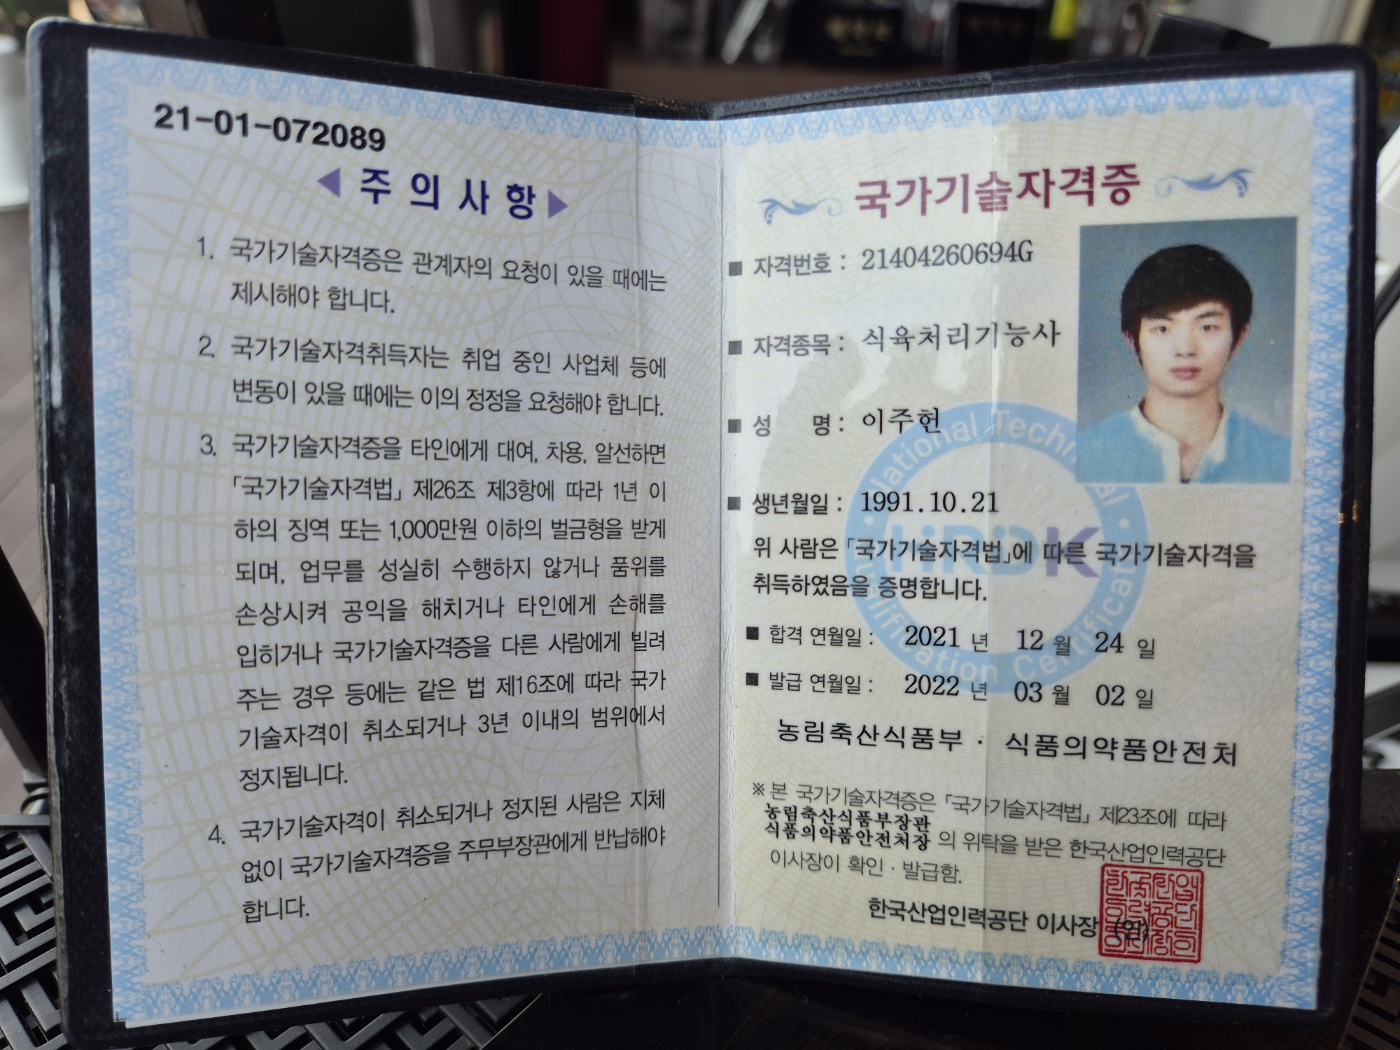 21-01-072089
◀ 주 의 사 항 ▶
1. 국가기술자격증은 관계자의 요청이 있을 때에는
제시해야 합니다.
2. 국가기술자격취득자는 취업 중인 사업체 등에
변동이 있을 때에는 이의 정정을 요청해야 합니다.
3. 국가기술자격증을 타인에게 대여, 차용, 알선하면
「국가기술자격법」 제26조 제3항에 따라 1년 이
하의 징역 또는 1,000만원 이하의 벌금형을 받게
되며, 업무를 성실히 수행하지 않거나 품위를
손상시켜 공익을 해치거나 타인에게 손해를
입히거나 국가기술자격증을 다른 사람에게 빌려
주는 경우 등에는 같은 법 제16조에 따라 국가
기술자격이 취소되거나 3년 이내의 범위에서
정지됩니다.
4. 국가기술자격이 취소되거나 정지된 사람은 지체
없이 국가기술자격증을 주무부장관에게 반납해야
합니다.
국가기술자격증
■ 자격번호 : 21404260694G
■ 자격종목 : 식육처리기능사
■ 성 명 : 이주헌
■ 생년월일 : 1991.10.21
위 사람은 「국가기술자격법」에 따른 국가기술자격을
취득하였음을 증명합니다.
■ 합격 연월일 : 2021 년 12 월 24 일
■ 발급 연월일 : 2022 년 03 월 02 일
농림축산식품부 · 식품의약품안전처
※ 본 국가기술자격증은 「국가기술자격법」 제23조에 따라
농림축산식품부장관
식품의약품안전처장 의 위탁을 받은 한국산업인력공단
이사장이 확인 · 발급함.
한국산업인력공단 이사장 (인)
HRDK